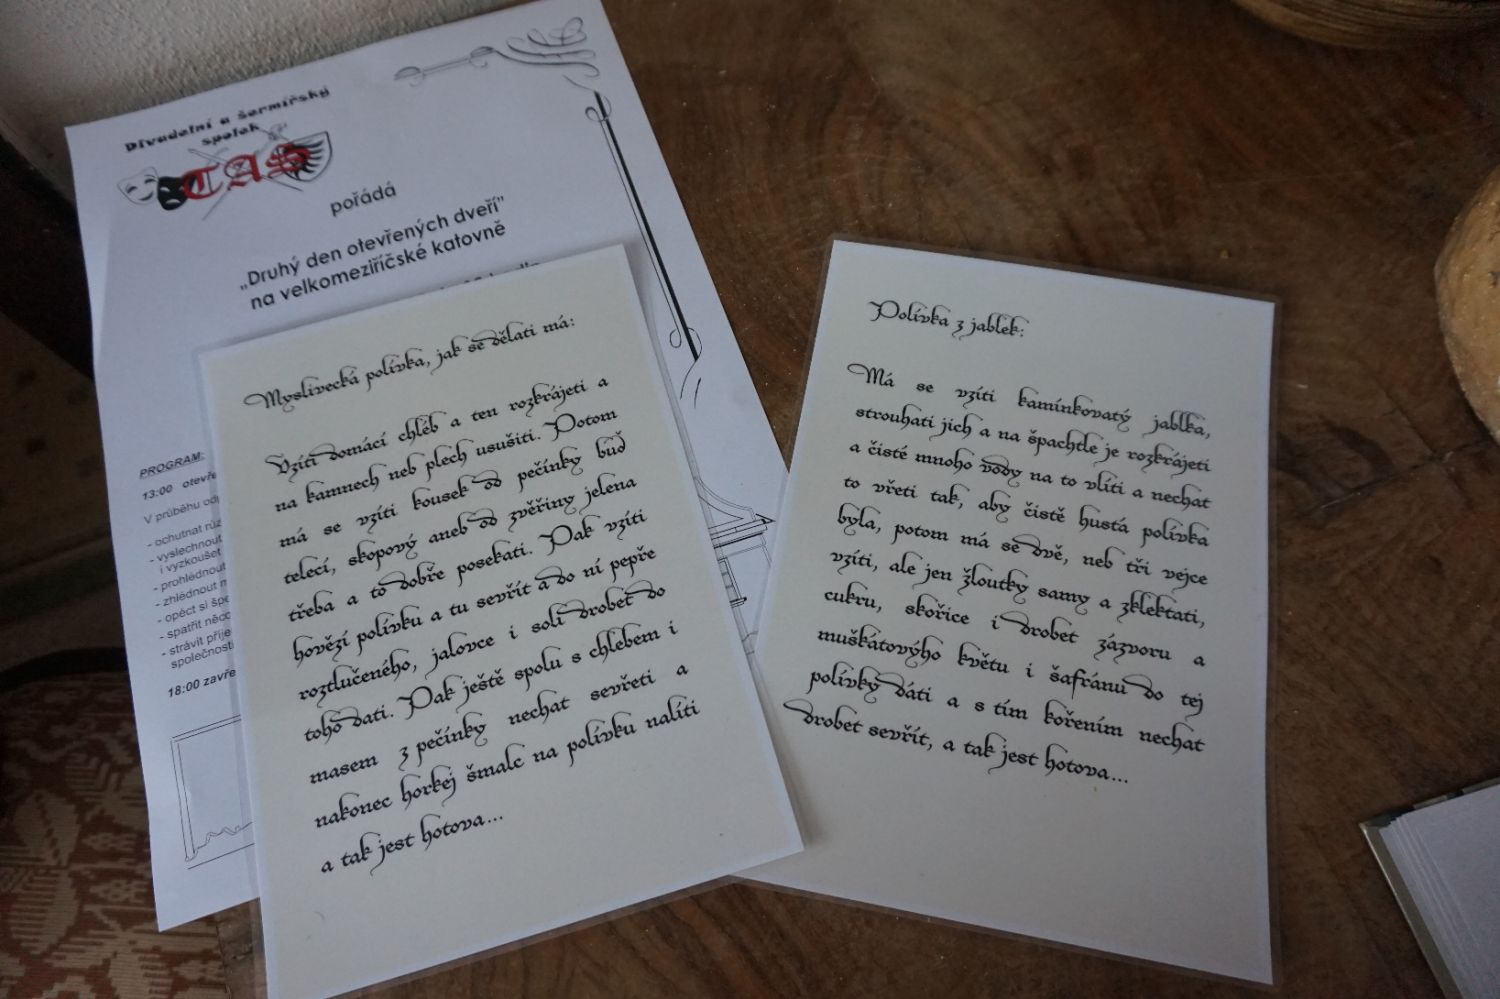 Divadelní a šermířský
spolek
TAS
pořádá
„Druhý den otevřených dveří"
na velkomeziříčské katovně
PROGRAM:
13:00 otevře
V průběhu odp
- ochutnat růz
- vyslechnout
i vyzkoušet
- prohlédnout
- zhlédnout m
- opéct si špe
- spatřit něco
- strávit příje
společnosti
18:00 zavře
Myslivecká polívka, jak se dělati má:
Vzíti domácí chléb a ten rozkrájeti a
na kamnech neb plech usušiti. Potom
má se vzíti kousek od pečínky buď
telecí, skopový aneb od zvěřiny jelena
třeba a to dobře posekati. Pak vzíti
hovězí polívku a tu sevřít a do ní pepře
roztlučeného, jalovce i soli drobet do
toho dati. Pak ještě spolu s chlebem i
masem z pečínky nechat sevřeti a
nakonec horkej šmalc na polívku nalíti
a tak jest hotova...
Polívka z jablek:
Má se vzíti kamínkovatý jablka,
strouhati jich a na špachtle je rozkrájeti
a čisté mnoho vody na to vlíti a nechat
to vřeti tak, aby čistě hustá polívka
byla, potom má se dvě, neb tři vejce
vzíti, ale jen žloutky samy a zklektati,
cukru, skořice i drobet zázvoru a
muškátovýho květu i šafránu do tej
polívky dáti a s tím kořením nechat
drobet sevřít, a tak jest hotova...